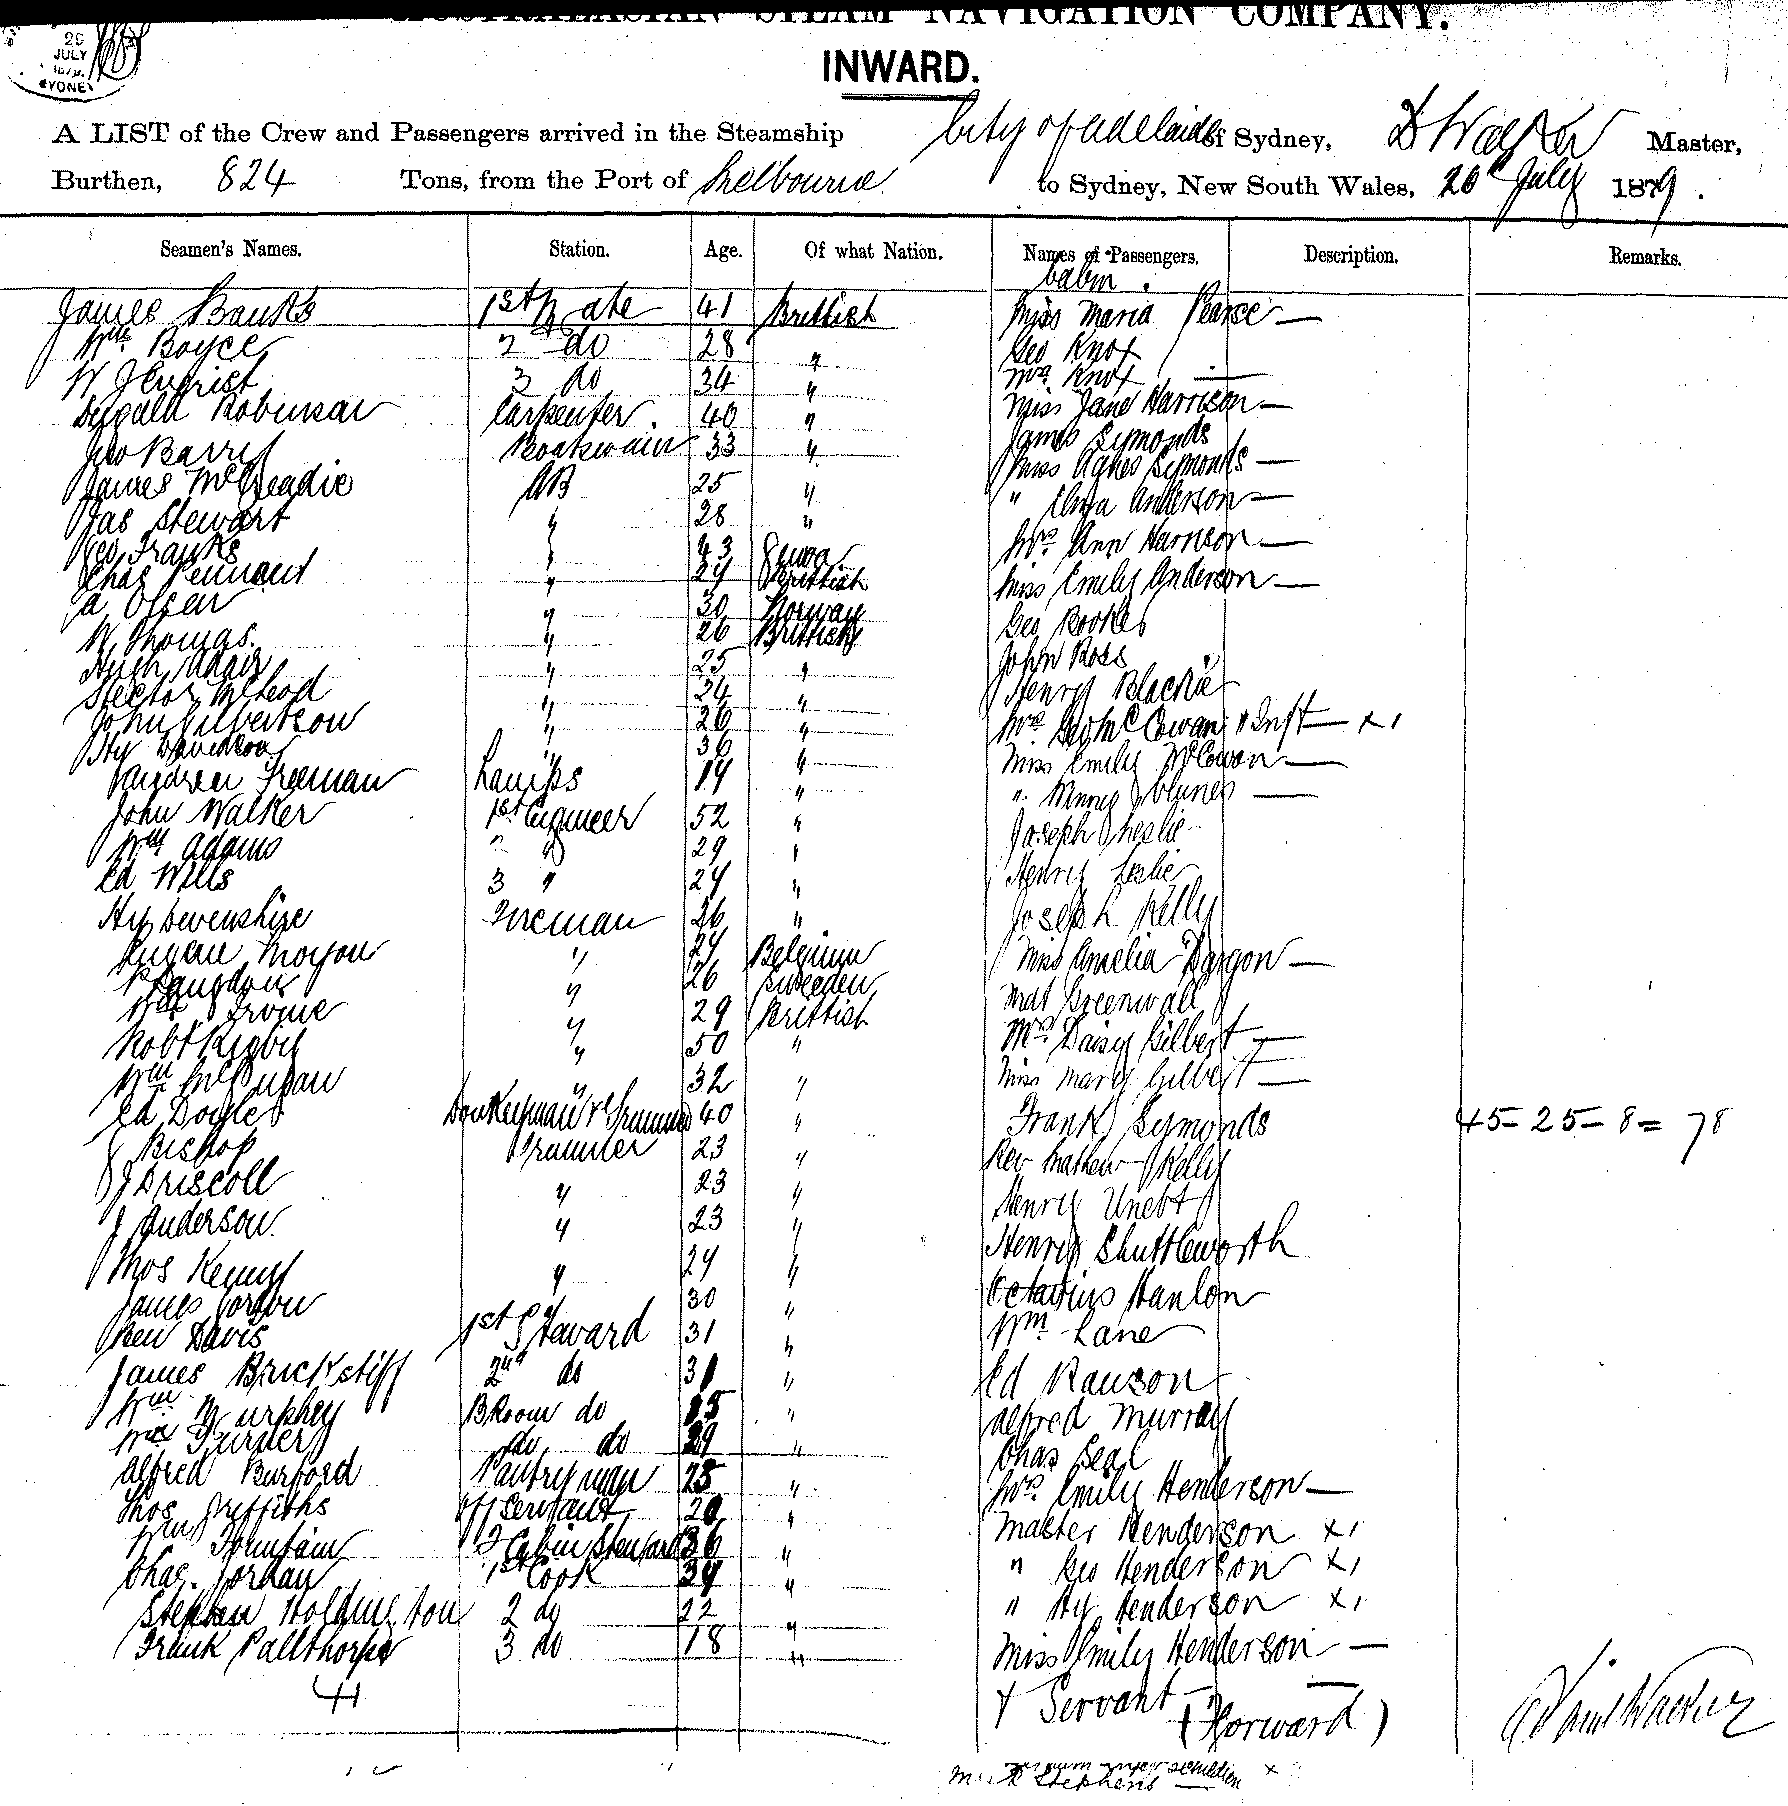 AUSTRALASIAN STEAM NAVIGATION COMPANY.
26
JULY
1879
SYDNEY
INWARD.
A LIST of the Crew and Passengers arrived in the Steamship City of Adelaide of Sydney, D Walker Master,
Burthen, 824 Tons, from the Port of Melbourne to Sydney, New South Wales, 26 July 1879.
Seamen's Names. Station. Age. Of what Nation. Names of Passengers. Description. Remarks.
Cabin.
James Banks 1st Mate 41 Brittish Miss Maria Pearce —
Wm Boyce 2 do 28 " Geo Knox
W 3 do 34 " Mrs Knox —
Dugald Robinson Carpenter. 40 " Miss Jane Harrison —
Barry Boatswain 33 " James Symonds
James McCreadie AB 25 " Miss Agnes Symonds —
Jas Stewart " 28 " " Eliza Anderson —
Geo Franks " 43 Mrs Ann Harrison —
Chas Pennant " 24 Brittish Miss Emily Anderson —
A Olsen " 30 Norway Geo Rookes
W Thomas. " 26 Brittish John Ross
Hugh Adair " 25 " Henry Blackie
Hector McLeod " 24 "
John Gilbertson " 26 " Mrs McCowan & Inft — x 1
Hy Davidson " 36 " Miss Emily McCowan —
Andrew Freeman Lamps 19 " " Clunes —
John Walker 1st Engineer 52 " Joseph Leslie
Wm Adams 2 " 29 " Henry Leslie
Ed Wills 3 " 24 "
Hy Devenshire Fireman 26 " Joseph Kelly
Moyon " 24 Belgium Miss Amelia Dargon —
Langdon " 26 Sweeden Greenwall
Wm Irvine " 29 Brittish Mrs Daisy Gilbert —
Robt Rigby " 50 "
Wm " 32 " Miss Mary Gilbert —
Ed Doyle Donkeyman & Trimmer 40 " Frank Symonds 45 - 25 - 8 = 78
J Bishop Trimmer 23 " Rev Mathew Kelly
J Driscoll " 23 " Henry
J Anderson. " 23 " Henry Shuttleworth
Thos Kenny " 24 " Octavius Hanlon
James Gordon " 30 "
Ben Davis 1st Steward 31 " Wm Lane
James Brickstiff 2nd do 31 " Ed Ranson
Wm Murphey BRoom do " Alfred Murray
Wm Turner do do 29 " Chas Seal
Alfred Burford Pantryman 25 " Mrs Emily Henderson —
Thos Griffiths Off Servant 20 " Master Henderson x 1
Wm Fountain 2 Cabin Steward 36 " " Geo Henderson x 1
Chas. Jordan 1st Cook 34 " " Hy Henderson x 1
Stephen Holdington 2 do 22 "
Frank Pallthorpe 3 do 18 " Miss Emily Henderson —
41 & Servant —
(Forward)
Stephens —